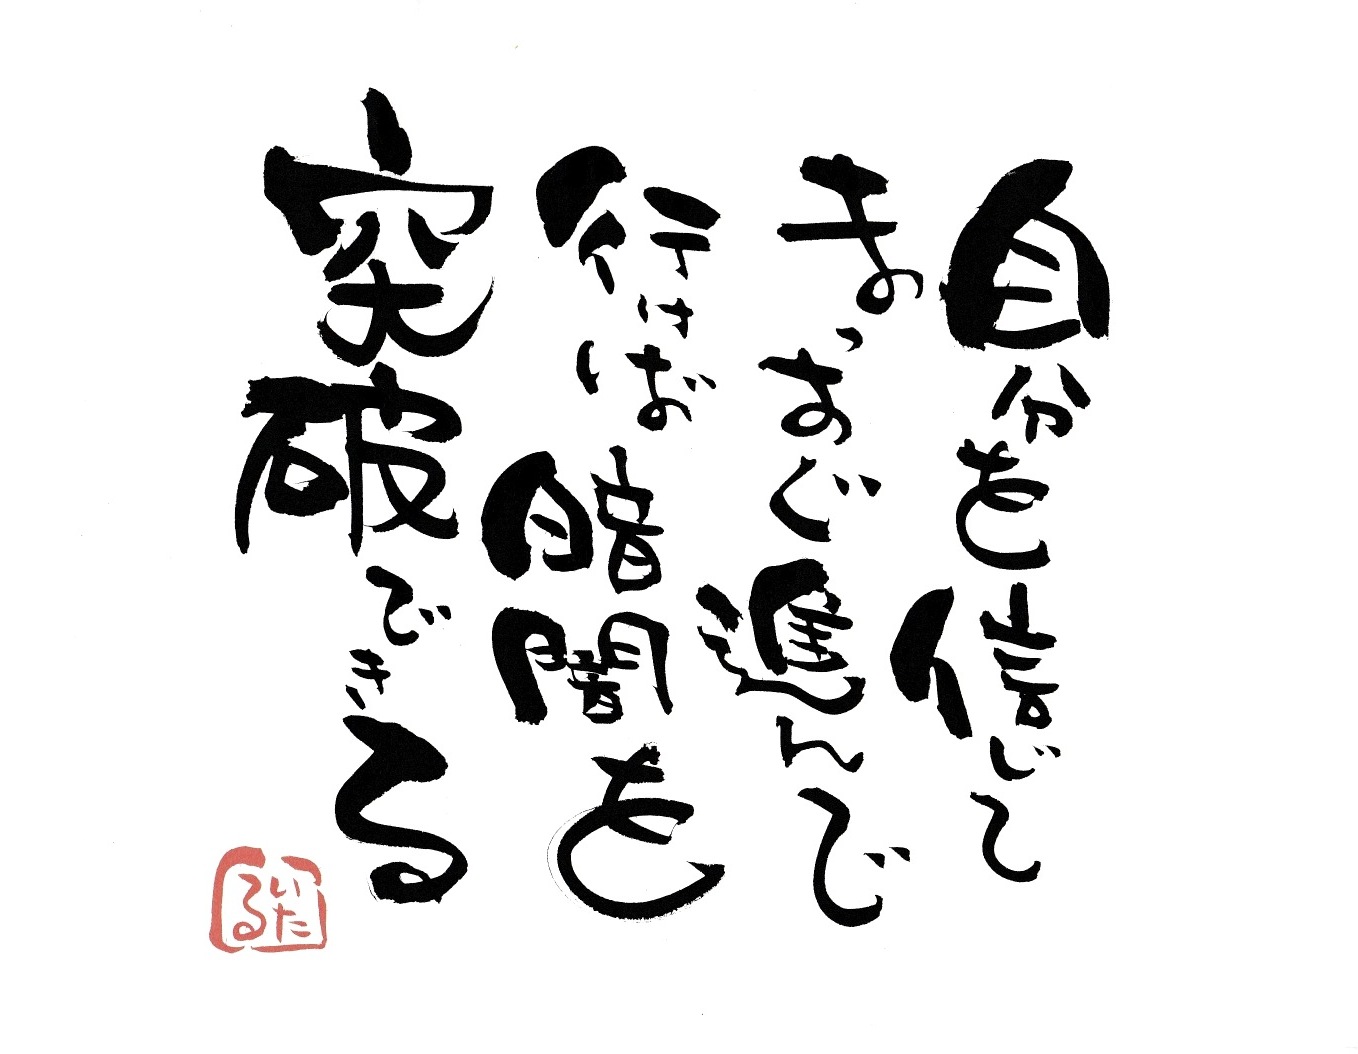 自分を信じて
まっすぐ進んで
行けば暗闇を
突破できる
いたる